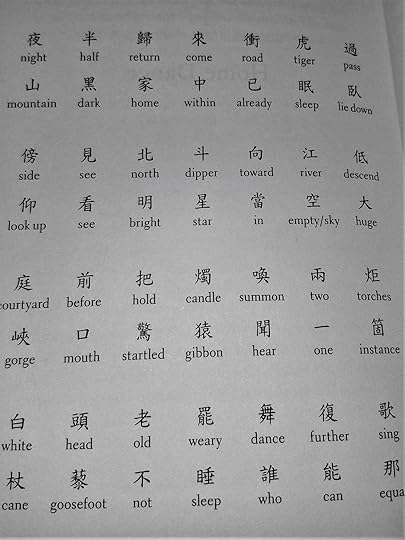 夜 半 歸 來 衝 虎 過
night half return come road tiger pass
山 黑 家 中 已 眠 臥
mountain dark home within already sleep lie down
傍 見 北 斗 向 江 低
side see north dipper toward river descend
仰 看 明 星 當 空 大
look up see bright star in empty/sky huge
庭 前 把 燭 喚 兩 炬
courtyard before hold candle summon two torches
峽 口 驚 猿 聞 一 箇
gorge mouth startled gibbon hear one instance
白 頭 老 罷 舞 復 歌
white head old weary dance further sing
杖 藜 不 睡 誰 能 那
cane goosefoot not sleep who can equa